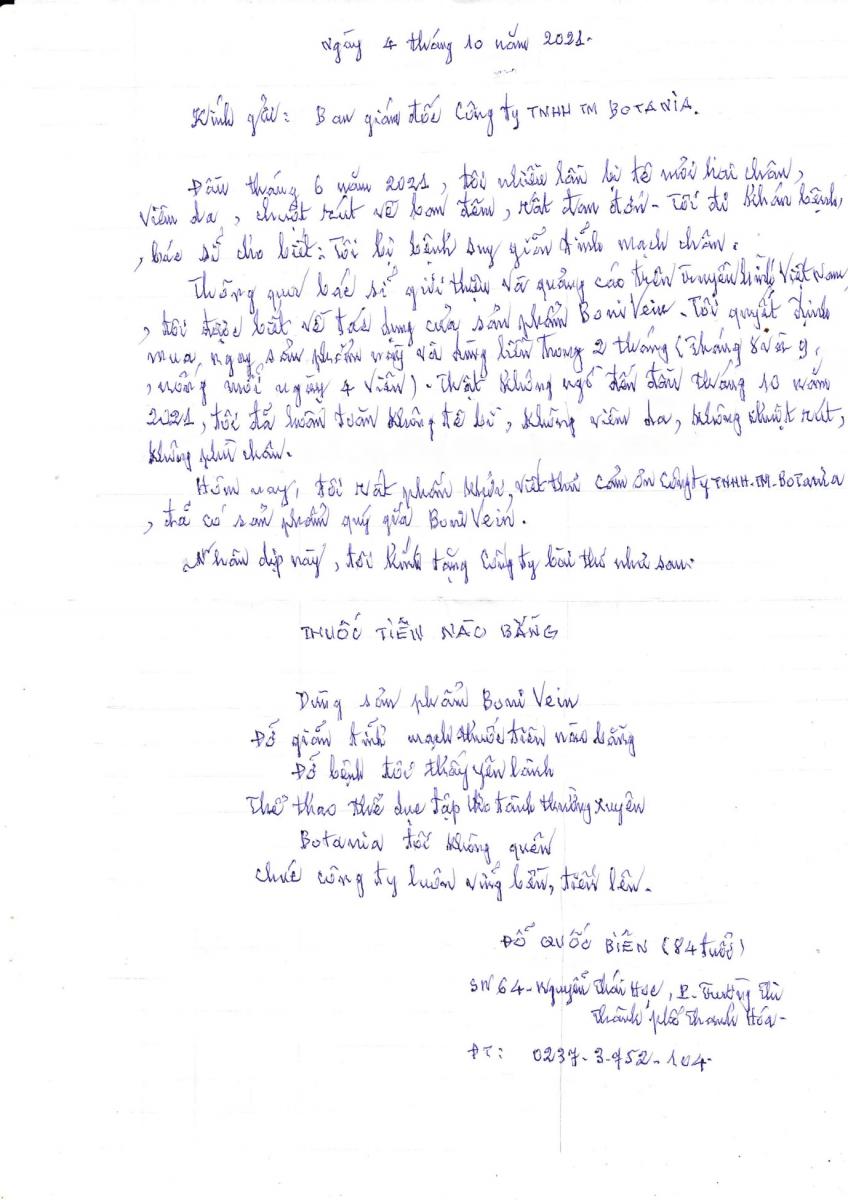 Ngày 4 tháng 10 năm 2021.
Kính gửi: Ban giám đốc Công ty TNHH TM BOTANIA.
Đầu tháng 6 năm 2021, tôi nhiều lần bị tê mỏi hai chân,
viêm da, chuột rút về ban đêm, rất đau đớn - Tôi đi khám bệnh,
, bác sĩ cho biết: Tôi bị bệnh suy giãn tĩnh mạch chân.
Thông qua bác sĩ giới thiệu và quảng cáo trên truyền hình Việt Nam
, tôi được biết về tác dụng của sản phẩm BoniVein - Tôi quyết định
mua ngay sản phẩm này và dùng liền trong 2 tháng (tháng 8 và 9,
, uống mỗi ngày 4 viên) - Thật không ngờ đến đầu tháng 10 năm
2021, tôi đã hoàn toàn không tê bì, không viêm da, không chuột rút,
không phù chân.
Hôm nay, tôi rất phấn khởi, viết thư cảm ơn Công ty TNHH-TM-Botania
, đã có sản phẩm quý giá BoniVein.
Nhân dịp này, tôi kính tặng Công ty bài thơ như sau:
THUỐC TIÊN NÀO BẰNG
Dùng sản phẩm BoniVein
Đỡ giãn tĩnh mạch thuốc tiên nào bằng
Đỡ bệnh tôi thấy yên lành
Thể thao thể dục tập thường xuyên
Botania tôi không quên
Chúc công ty luôn vững bền, tiến lên.
ĐỖ QUỐC BIÊN (84 tuổi)
SN 64 - Nguyễn Thái Học, P. Trường Thi
Thành phố Thanh Hóa -
ĐT: 0237-3-752-104-